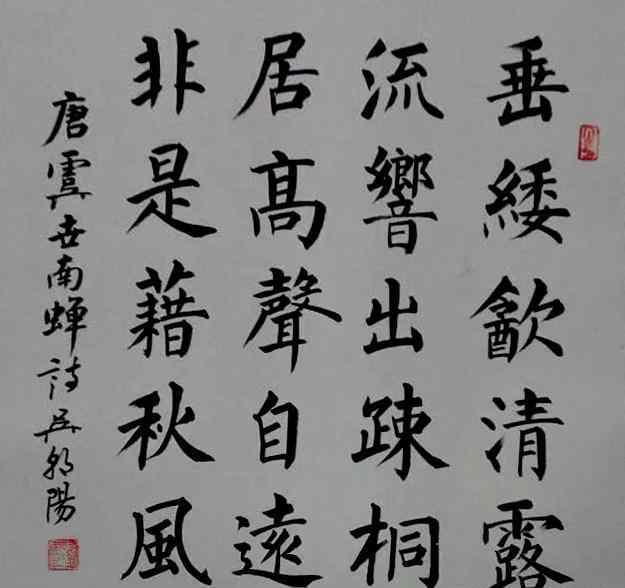 垂緌㱃清露
流響出疎桐
居髙聲自遠
非是藉秋風
唐虞世南蝉詩吴